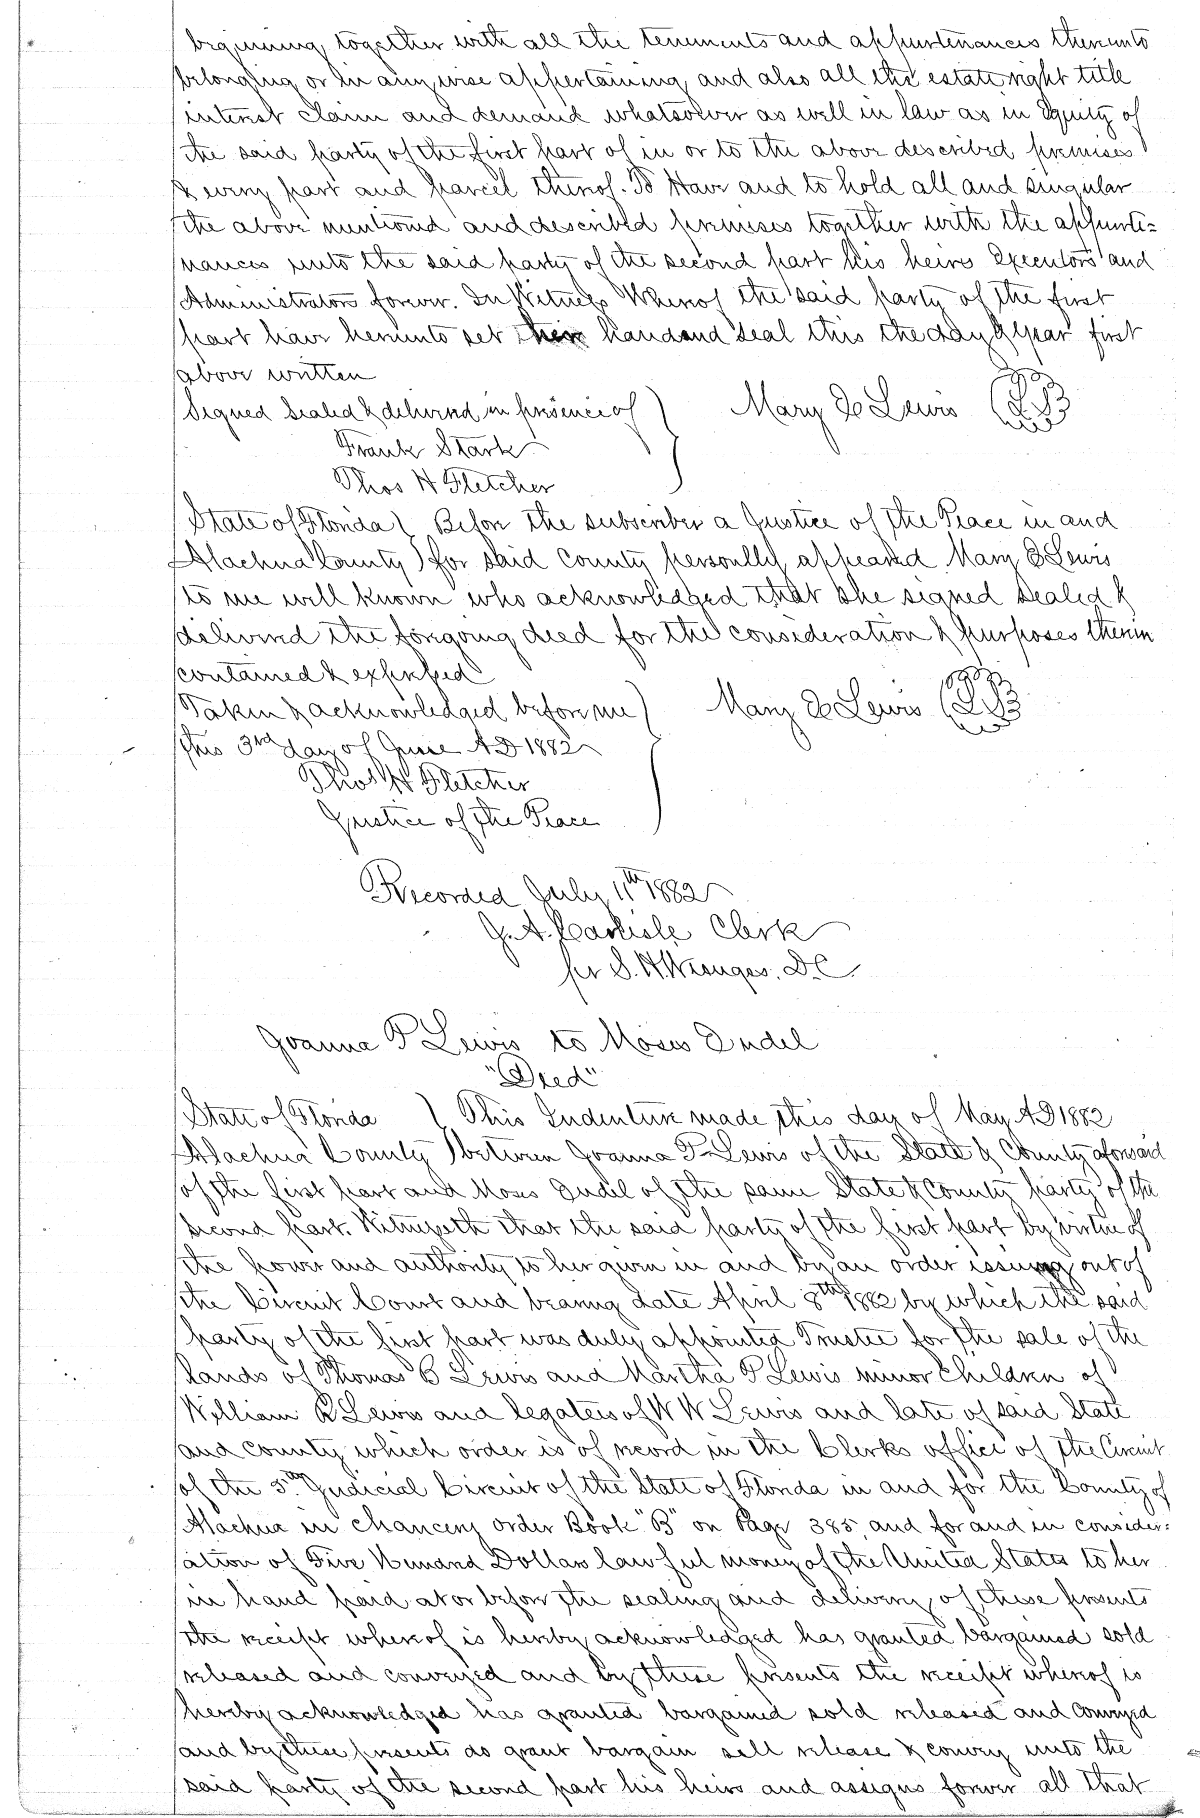 beginning, together with all the tenements and appurtenances thereunto
belonging or in any wise appertaining, and also all the estate right title
interest claim and demand whatsoever as well in law as in Equity of
the said party of the first part of in or to the above described premises
& every part and parcel thereof. To Have and to hold all and singular
the above mentioned and described premises together with the appurte=
nances unto the said party of the second part his heirs Executors and
Administrators forever. In Witness Whereof the said party of the first
part have hereunto set their hand and seal this the day & year first
above written
Signed Sealed & delivered in presence of } Mary E Lewis (LS)
Frank Stark
Thos H Fletcher
State of Florida } Before the subscriber a Justice of the Peace in and
Alachua County } for said County personally appeared Mary E Lewis
to me well known who acknowledged that she signed sealed &
delivered the foregoing deed for the consideration & purposes therein
contained & expressed
Taken & acknowledged before me } Mary E Lewis (LS)
this 3rd day of June AD 1882
Thos H Fletcher
Justice of the Peace
Recorded July 11th 1882
J. A. Carlisle Clerk
pr S. H. Wienges. D.C.
Joanna P Lewis to Moses Endel
"Deed"
State of Florida } This Indenture made this day of May AD 1882
Alachua County } between Joanna P Lewis of the State & County aforesaid
of the first part and Moses Endel of the same State & County party of the
second part. Witnesseth that the said party of the first part by virtue of
the power and authority to her given in and by an order issuing out of
the Circuit Court and bearing date April 8th 1882 by which the said
party of the first part was duly appointed Trustee for the sale of the
lands of Thomas B Lewis and Martha P Lewis minor children of
William R Lewis and legatees of W W Lewis and late of said State
and County which order is of record in the Clerks office of the Circuit
of the 5th Judicial Circuit of the State of Florida in and for the County of
Alachua in Chancery order Book "B" on Page 385, and for and in consider=
ation of Five Hundred Dollars lawful money of the United States to her
in hand paid at or before the sealing and delivery of these presents
the receipt whereof is hereby acknowledged has granted bargained sold
released and conveyed and by these presents the receipt whereof is
hereby acknowledged has granted bargained sold released and conveyed
and by these presents do grant bargain sell release & convey unto the
said party of the second part his heirs and assigns forever all that